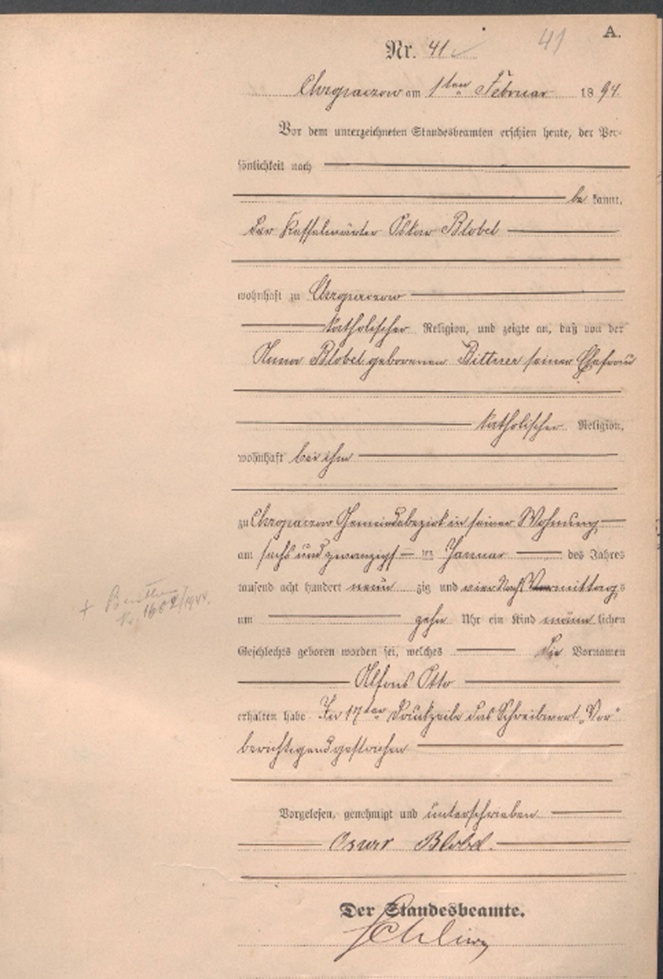 A.
Nr. 41
41
Chropaczow am 1ten Februar 1894.
Vor dem unterzeichneten Standesbeamten erschien heute, der Per-
sönlichkeit nach
be kannt,
der Kesselwärter Oskar Blobel
wohnhaft zu Chropaczow
katholischer Religion, und zeigte an, daß von der
Anna Blobel geborenen Bittner seiner Ehefrau
katholischer Religion,
wohnhaft bei ihm
zu Chropaczow Gemeindebezirk in seiner Wohnung
am sechs und zwanzigsten Januar des Jahres
tausend acht hundert neun zig und vier Nach Vormittags
um zehn Uhr ein Kind männlichen
Geschlechts geboren worden sei, welches die Vornamen
Alfons Otto
erhalten habe. In 17ter Druckzeile das Schreibwort „Vor"
berichtigend gestrichen
Vorgelesen, genehmigt und unterschrieben
Oskar Blobel.
Der Standesbeamte.
+ Beuthen
Nr. 1602/1944.